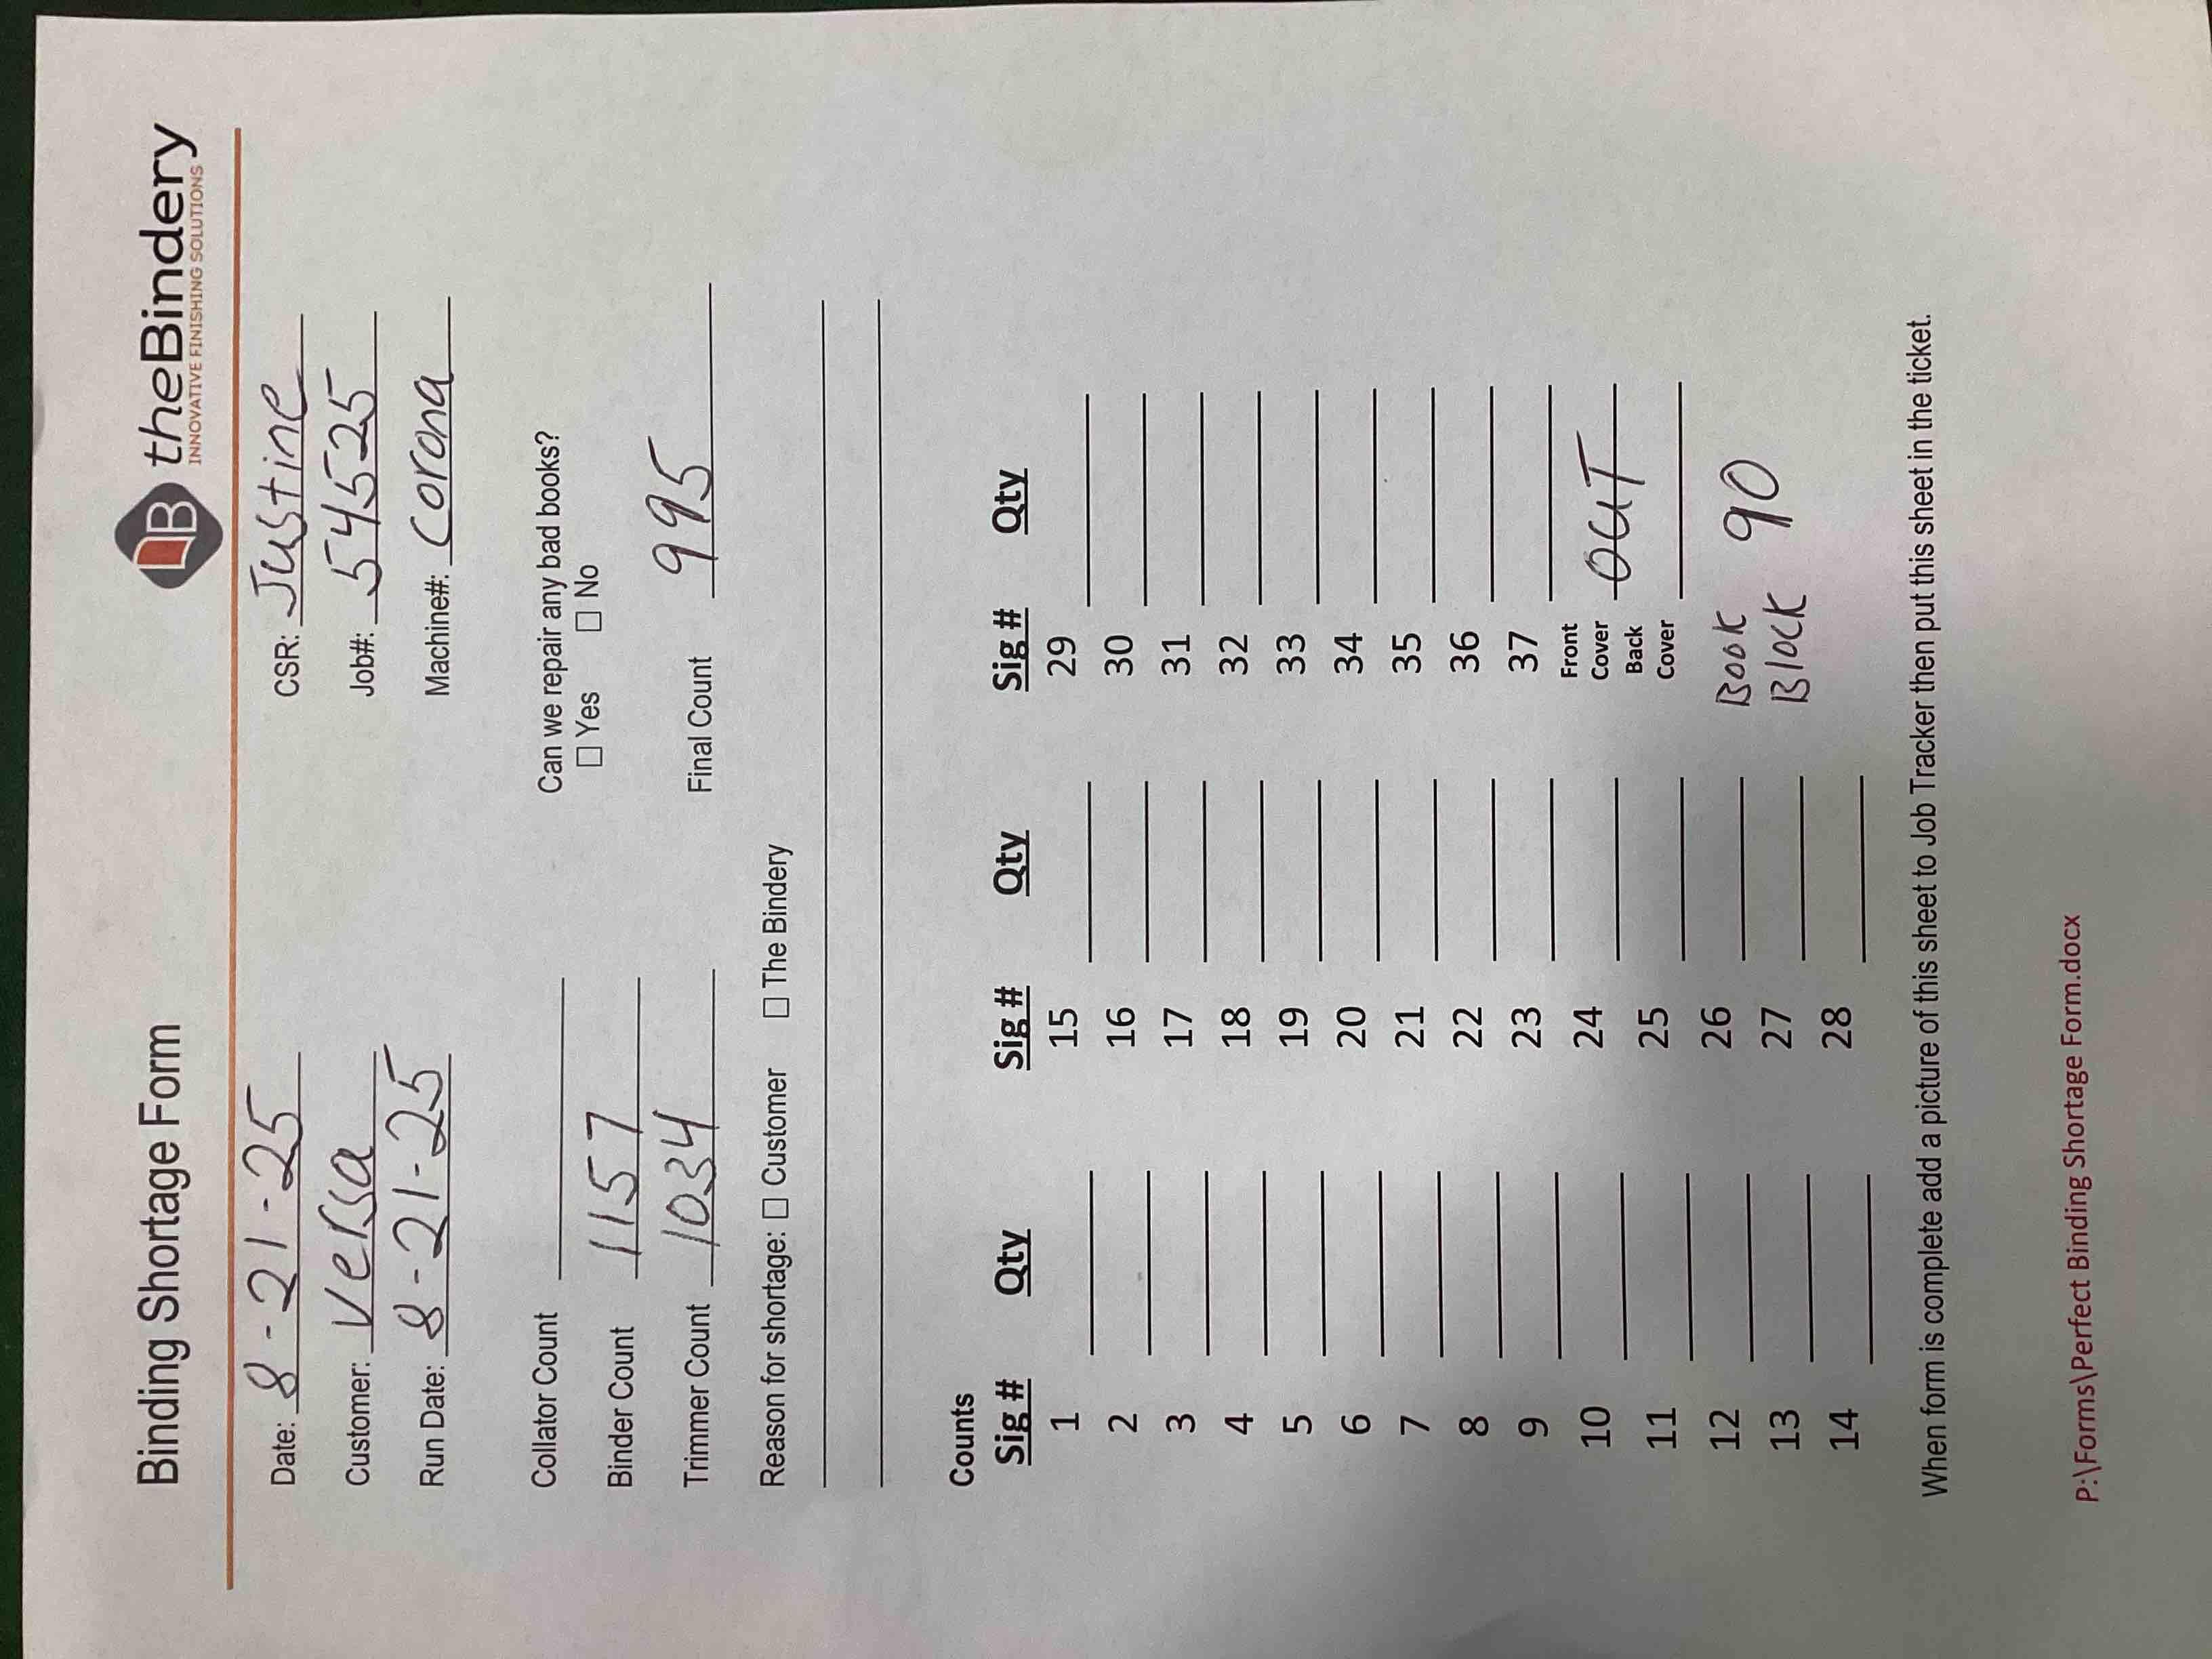 Binding Shortage Form
theBindery
INNOVATIVE FINISHING SOLUTIONS
Date: 8-21-25 CSR: Justine
Customer: Versa Job#: 54525
Run Date: 8-21-25 Machine#: Corona
Collator Count Can we repair any bad books?
☐ Yes ☐ No
Binder Count 1157
Trimmer Count 1034 Final Count 995
Reason for shortage: ☐ Customer ☐ The Bindery
Counts
Sig # Qty Sig # Qty Sig # Qty
1 15 29
2 16 30
3 17 31
4 18 32
5 19 33
6 20 34
7 21 35
8 22 36
9 23 37
10 24 Front Cover OUT
11 25 Back Cover
12 26 Book
13 27 Block 90
14 28
When form is complete add a picture of this sheet to Job Tracker then put this sheet in the ticket.
P:\Forms\Perfect Binding Shortage Form.docx